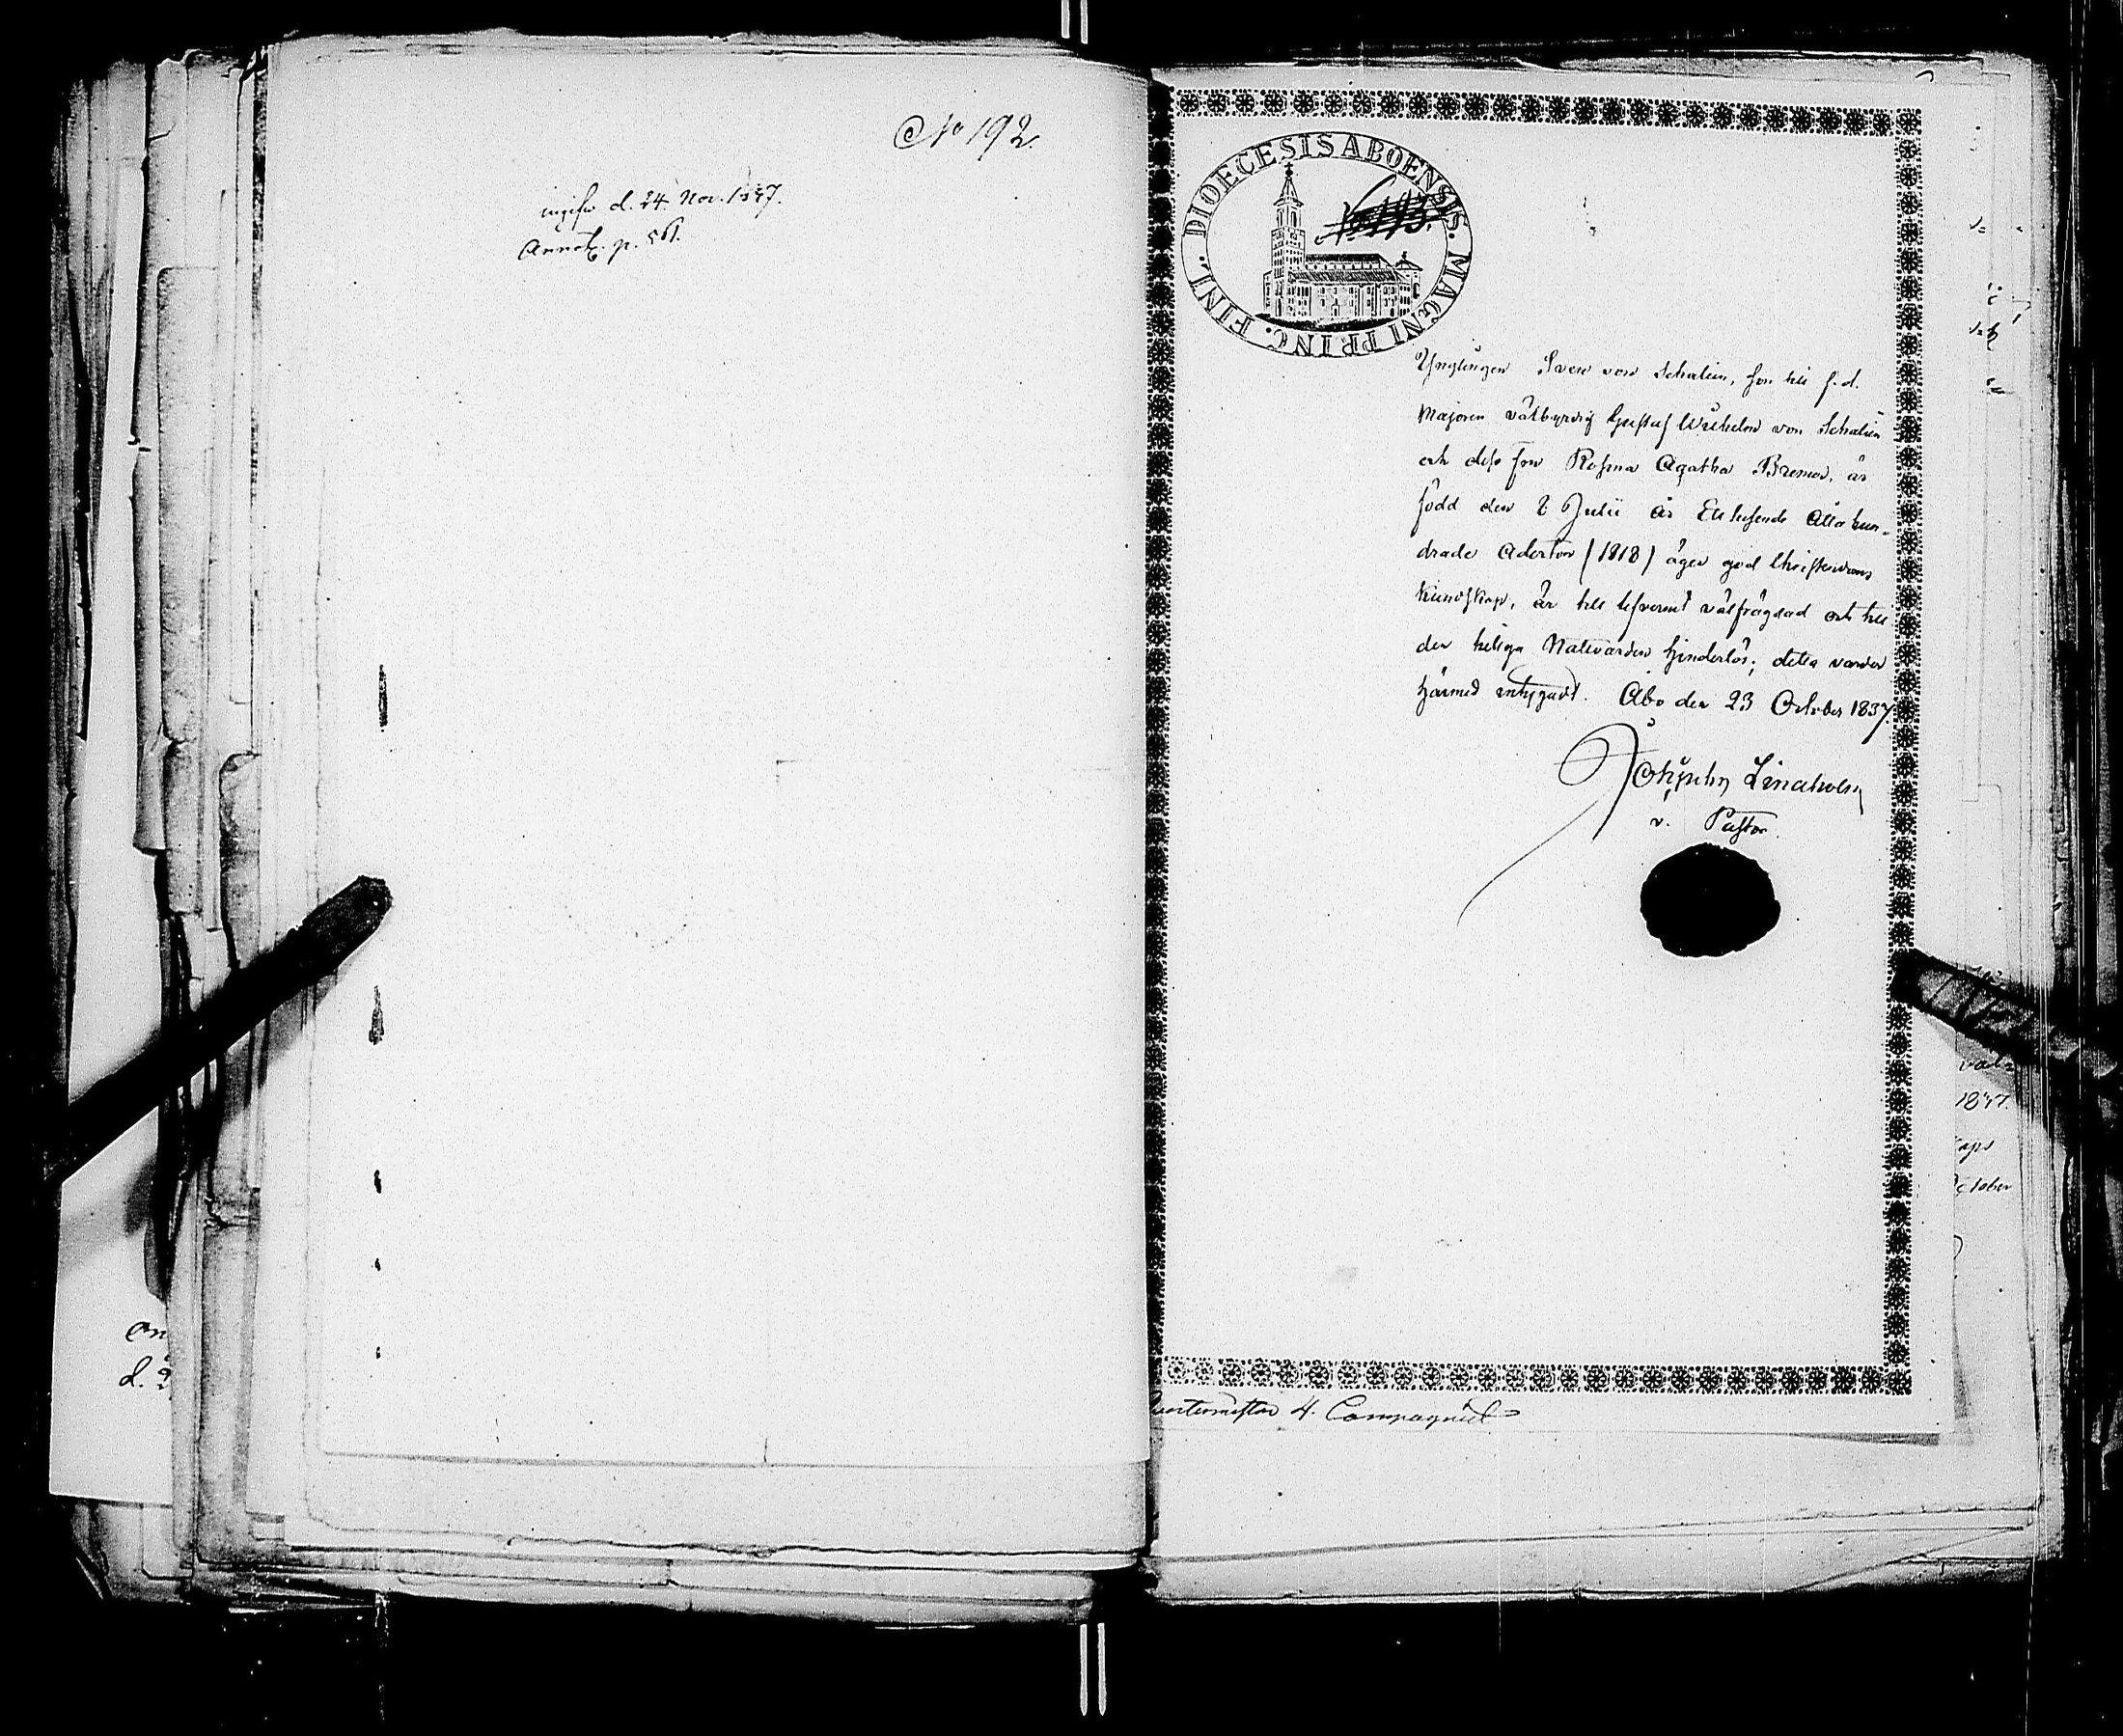 No 192.
ingifw d. 24. Nov. 1837.
Annot. p. 561.
DIOECESIS ABOENSIS. MAGNI PRINC. FINL.
No 193.
Ynglingen Sven von Schalien, son till f. d.
Majoren välbyrdig Gustaf Wilhelm von Schalien
och dess fru Rosina Agatha Bremer, är
född den 8 Julii år Ettusende Åttahun-
drade Aderton (1818) äger god Christendoms
kundskap, är till lefvernet välfrägdad och till
den heliga Nattvarden hinderlös; detta varder
härmed intygadt. Åbo den 23 October 1837.
Lindholm
v. Pastor.
4. Compagniet
1837.
ctober
d. 2